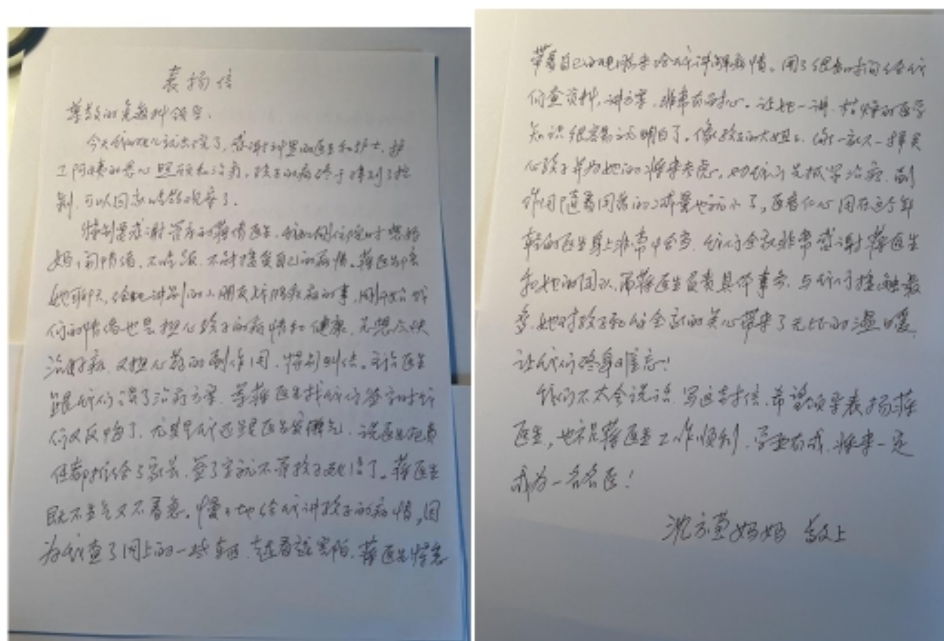 表扬信
尊敬的免疫科领导:
今天我的女儿就出院了,感谢科里的医生和护士,护
工阿姨的悉心照顾和治疗,孩子的病终于得到了控
制,可以回家
特别是感谢管床的蒋倩医生,
妈,闹情绪,不吃饭,不能接受自己的病情。蒋医生陪
她聊天,给她讲别的小朋友战胜疾病的事,同时我
们的情绪也是担心孩子的病情和健康,既想尽快
治好病,又担心药的副作用,特别纠结。主治医生
跟我们谈了治疗方案,等蒋医生找我们签字时我
们又反悔了,尤其是我还跟医生发脾气,说医生把责
任都推给了家长,签了字就不管孩子死活了。蒋医生
既不生气又不着急,慢慢地给我讲孩子的病情,因
为我查了网上的一些东西,越看越害怕,蒋医生
带着自己的电脑来给我讲解病情。用了很长时间给我
们查资料,讲方案,非常有耐心。让她一讲,枯燥的医学
知识很容易就明白了。像孩子的大姐姐,像一家人一样关
心孩子并为她的将来考虑。
作用随着用药的减量也就小了,医者仁心用在这个年
轻的医生身上非常合适,我们全家非常感谢蒋医生
和她的团队,而蒋医生负责具体事务,与我们接触最
多,她对孩子和我全家的关心带来了无比的温暖,
让我们终身难忘!
我们不太会说话,写这封信,希望领导表扬蒋
医生,也祝蒋医生工作顺利,学业有成,将来一定
成为一名名医!
妈妈 敬上